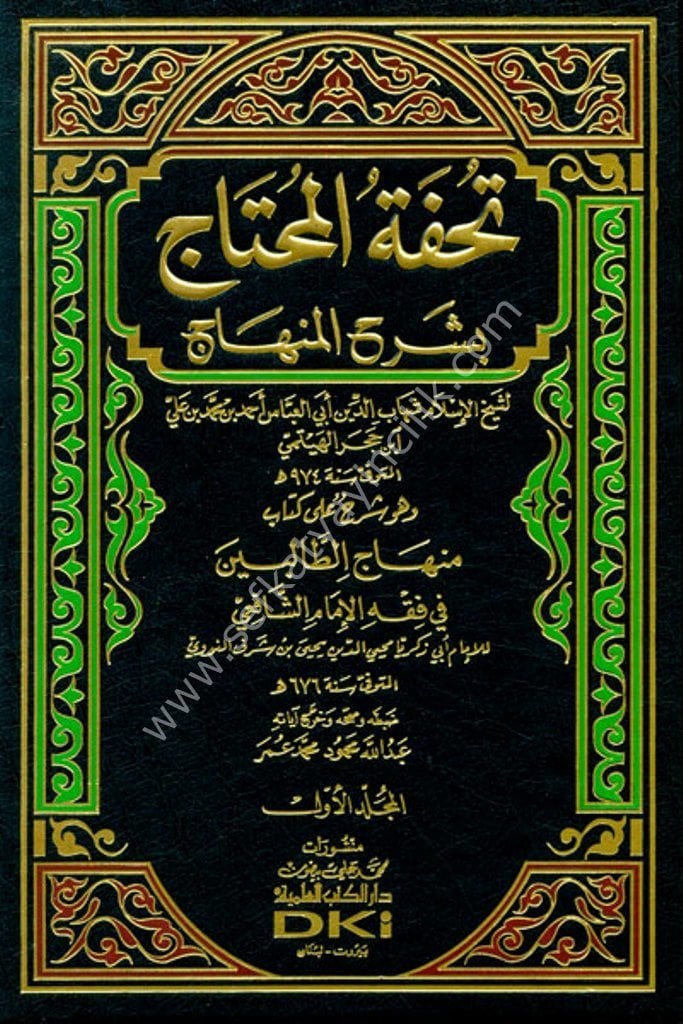 تُحْفَةُ المُحْتَاج
بشرح المنهاج
لشيخ الإسلام شهاب الدّين أبي العبّاس أحمد بن محمّد بن عليّ
ابن حجر الهيتميّ
المتوفى سنة ٩٧٤ هـ
وهو شرح على كتاب
منهاج الطّالبين
في فقه الإمام الشّافعيّ
للإمام أبي زكريّا محيي الدّين يحيى بن شرف النوويّ
المتوفّى سنة ٦٧٦ هـ
ضبطه وصحّحه وخرّج آياته
عبد الله محمود محمّد عمر
المجلّد الأوّل
منشورات
محمّد علي بيضون
دار الكتب العلمية
DKi
بيروت - لبنان
www.sefkatyayincilik.com